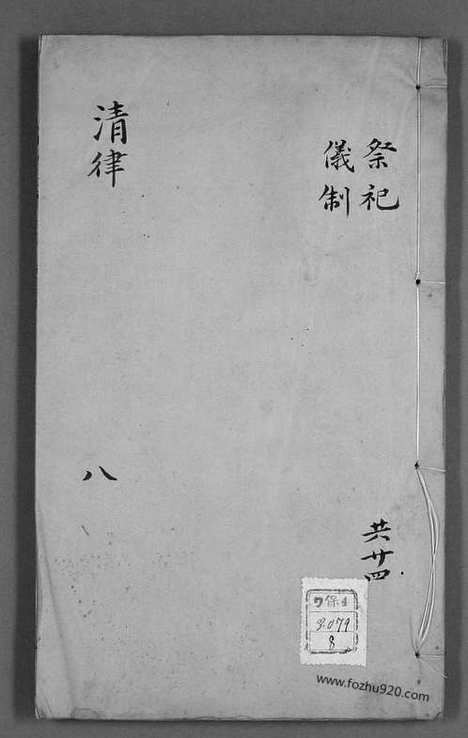 祭祀
儀制
共廿四
清律
八
ワ保4
3.079
8
www.fozhu920.com